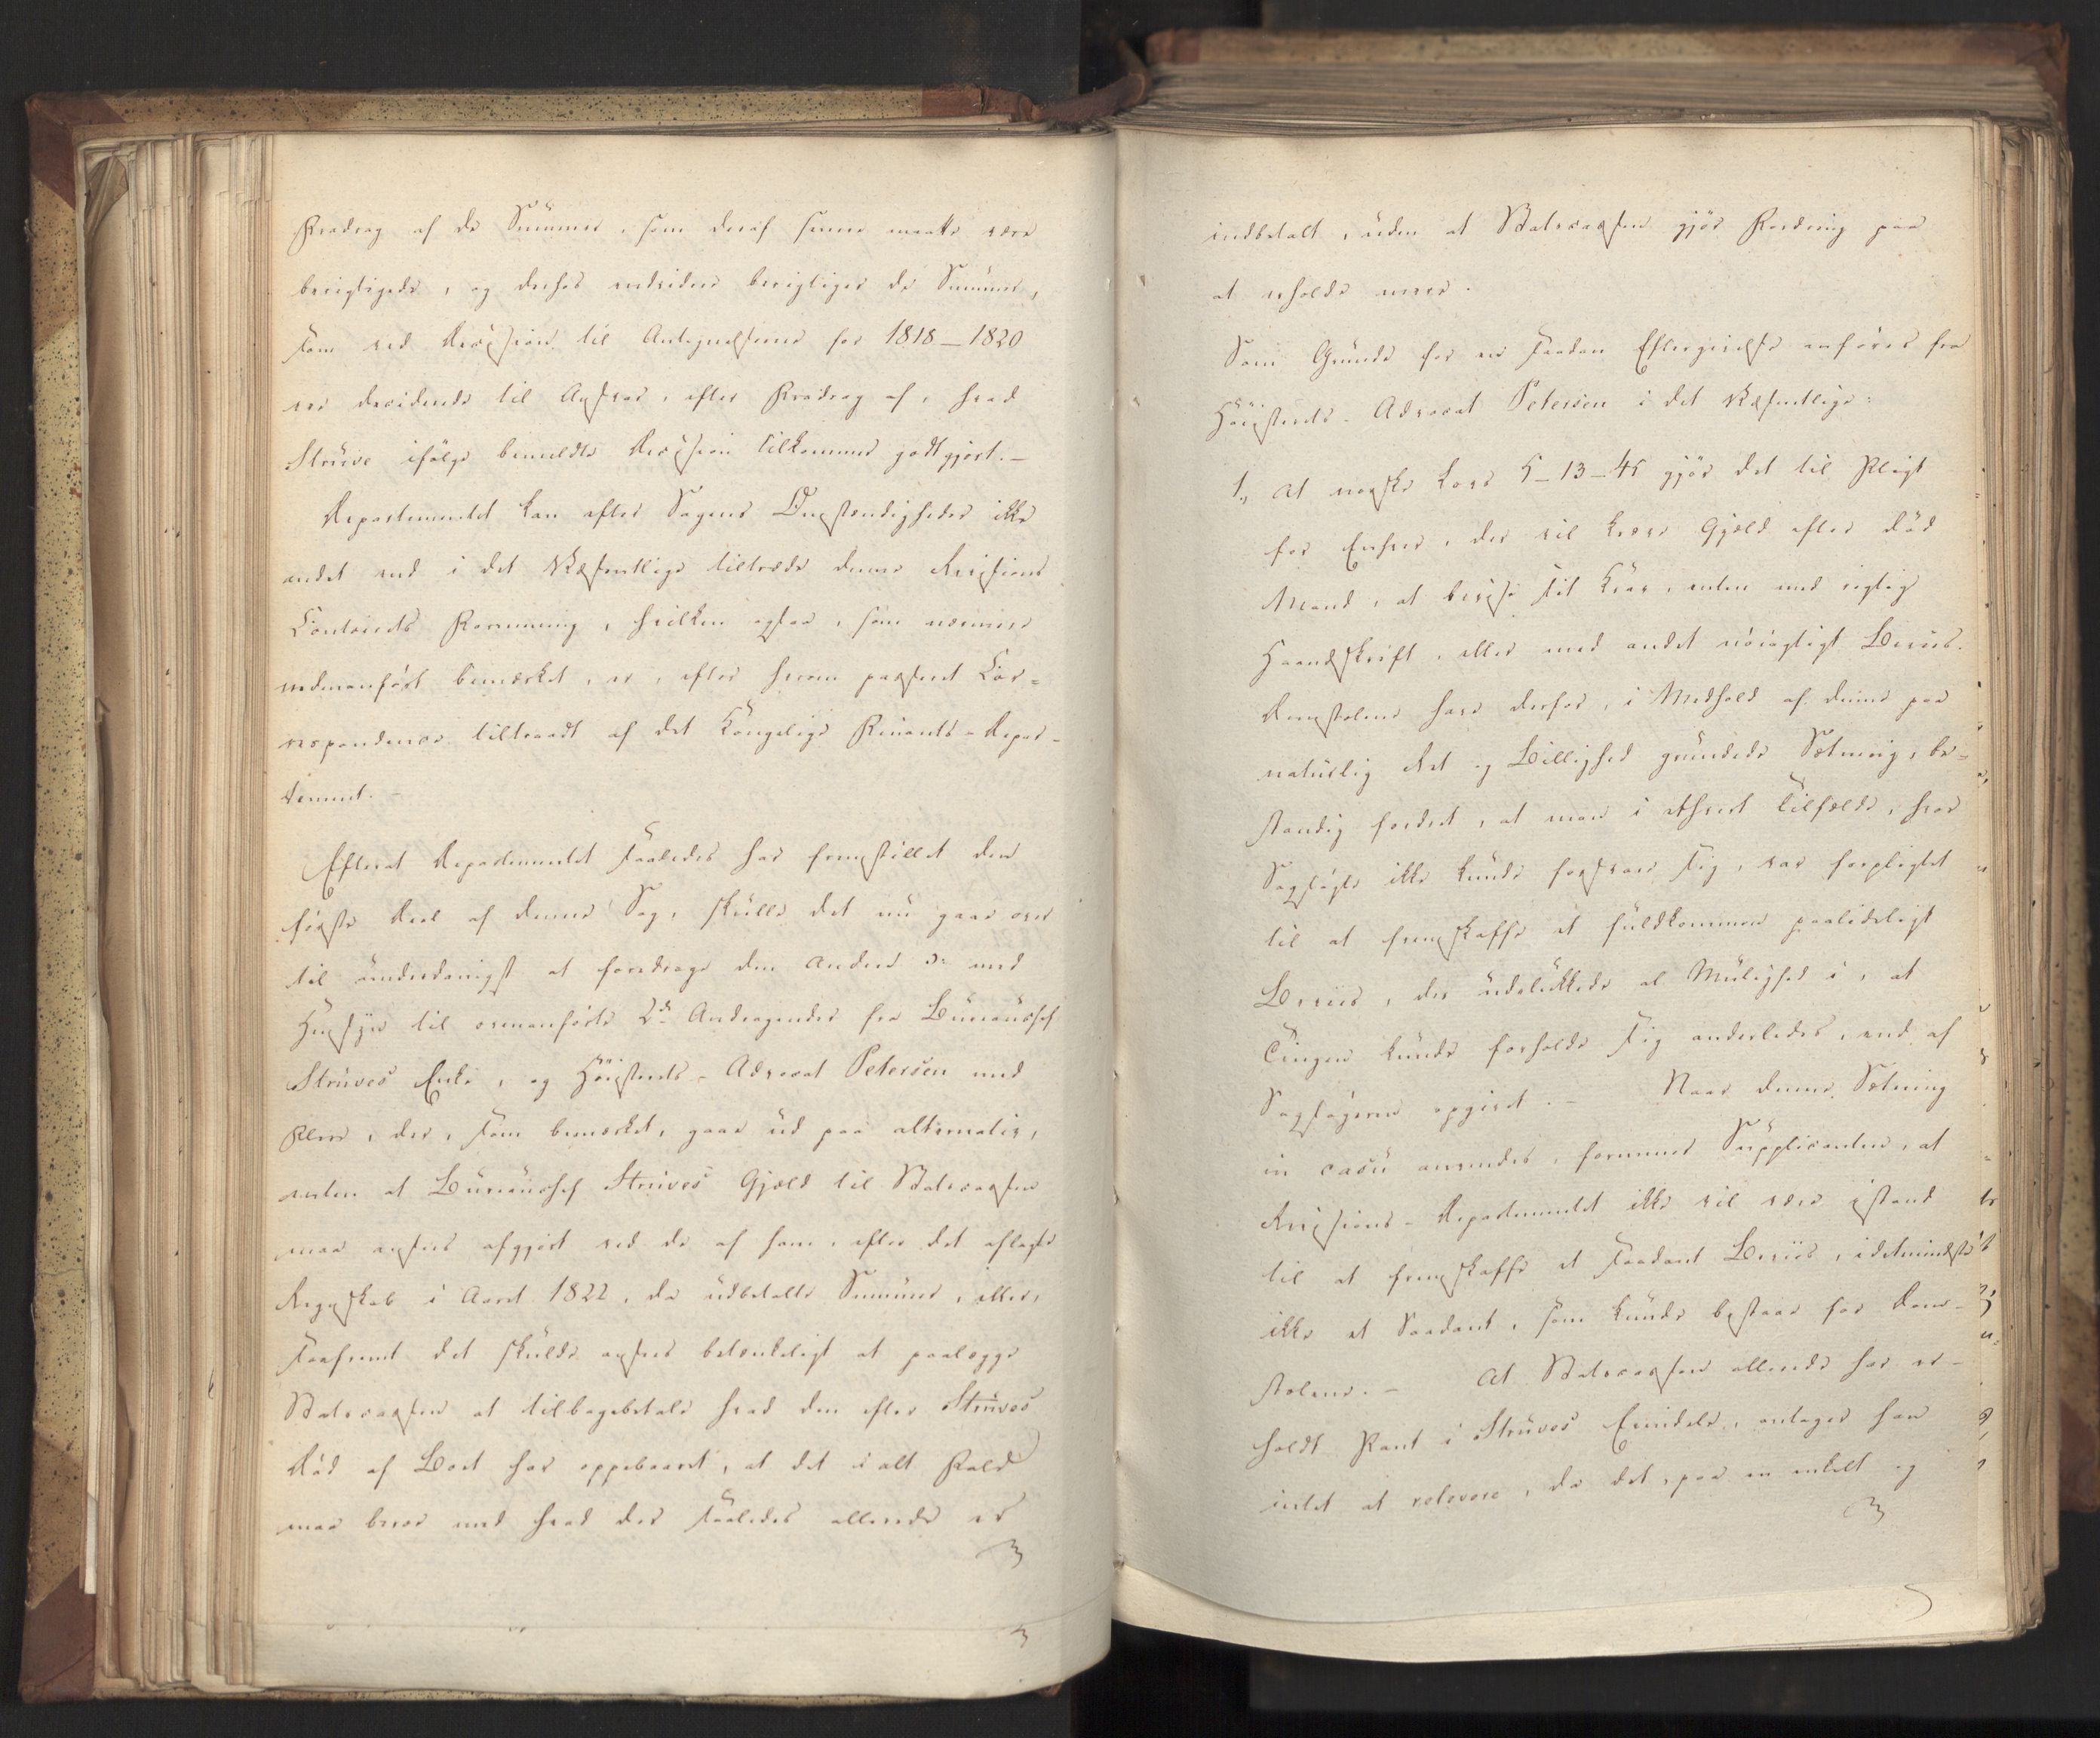 Fradrag af de Summer, som deraf senere maatte være
berigtigede, og derhos endvidere berigtiger de Summer,
som ved Decision til Antegnelserne for 1818–1820
ere deciderede til Ansvar, efter Fradrag af, hvad
Struve ifølge bemeldte Decision tilkommer godtgjort.–
Departementet kan efter Sagens Omstændigheder ikke
andet end i det Væsentlige tiltræde denne Revisions
Contoirets Formening, hvilken ogsaa, som nærmere
nedenanført bemærket, er, efter herom passeret Cor=
respondence tiltraadt af det Kongelige Finants-Depar-
tement.–
Efterat Departementet saaledes har fremstillet den
første Deel af denne Sag, skulle det nu gaae over
til underdanigst at foredrage den Anden ɔ: med
Hensyn til ovenanførte 2de Andragender fra Bureauchef
Struves Enke, og Høiesterets-Advocat Petersen med
Flere, der, som bemærket, gaae ud paa alternativ,
enten at Bureauchef Struves Gjæld til Statscassen
maa ansees afgjort ved de af ham, efter det aflagte
Regnskab i Aaret 1822, da udbetalte Summer, eller,
saafremt det skulde ansees betænkeligt at paalægge
Statscassen at tilbagebetale hvad den efter Struves
Død af Boet har oppebaaret, at det i alt Fald
maa beroe med hvad der saaledes allerede er
indbetalt, uden at Statscassen gjør Fordring paa
at erholde mere.
Som Grunde for en saadan Eftergivelse anføres fra
Høiesterets-Advocat Petersen i det Væsentlige:
1., At norske Lovs 5–13–45 gjør det til Pligt
for Enhver, der vil kræve Gjæld efter død
Mand, at bevise sit Krav, enten med rigtig
Haandskrift, eller med andet nøiagtigt Beviis.
Domstolene have derfor, i Medhold af denne paa
naturlig Ret og Billighed grundede Sætning, be-
standig fordret, at man i ethvert Tilfælde, hvor
Sagsøgte ikke kunde forsvare sig, var forpligtet
til at fremskaffe et fuldkommen paalideligt
Beviis, der udelukkede al Mulighed i, at
Tingen kunde forholde sig anderledes, end af
Sagsøgeren opgivet.– Naar denne Sætning
in casu anvendes, formener Supplicanten, at
Revisions-Departementet ikke vil være istand
til at fremskaffe et saadant Beviis, idetmindste
ikke et Saadant, som kunde bestaae for Dom-
stolene.– At Statscassen allerede har er-
holdt Pant i Struves Eiendele, antager han
intet at relevere, da det, paa en enkelt og